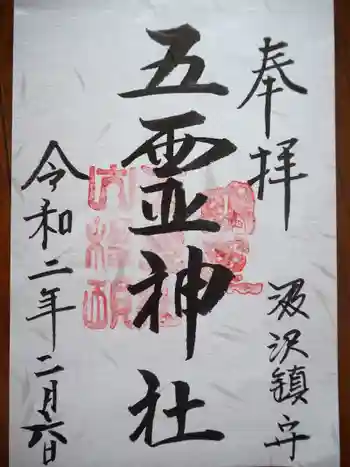 奉拝
汲沢鎮守
五霊神社
令和二年二月六日